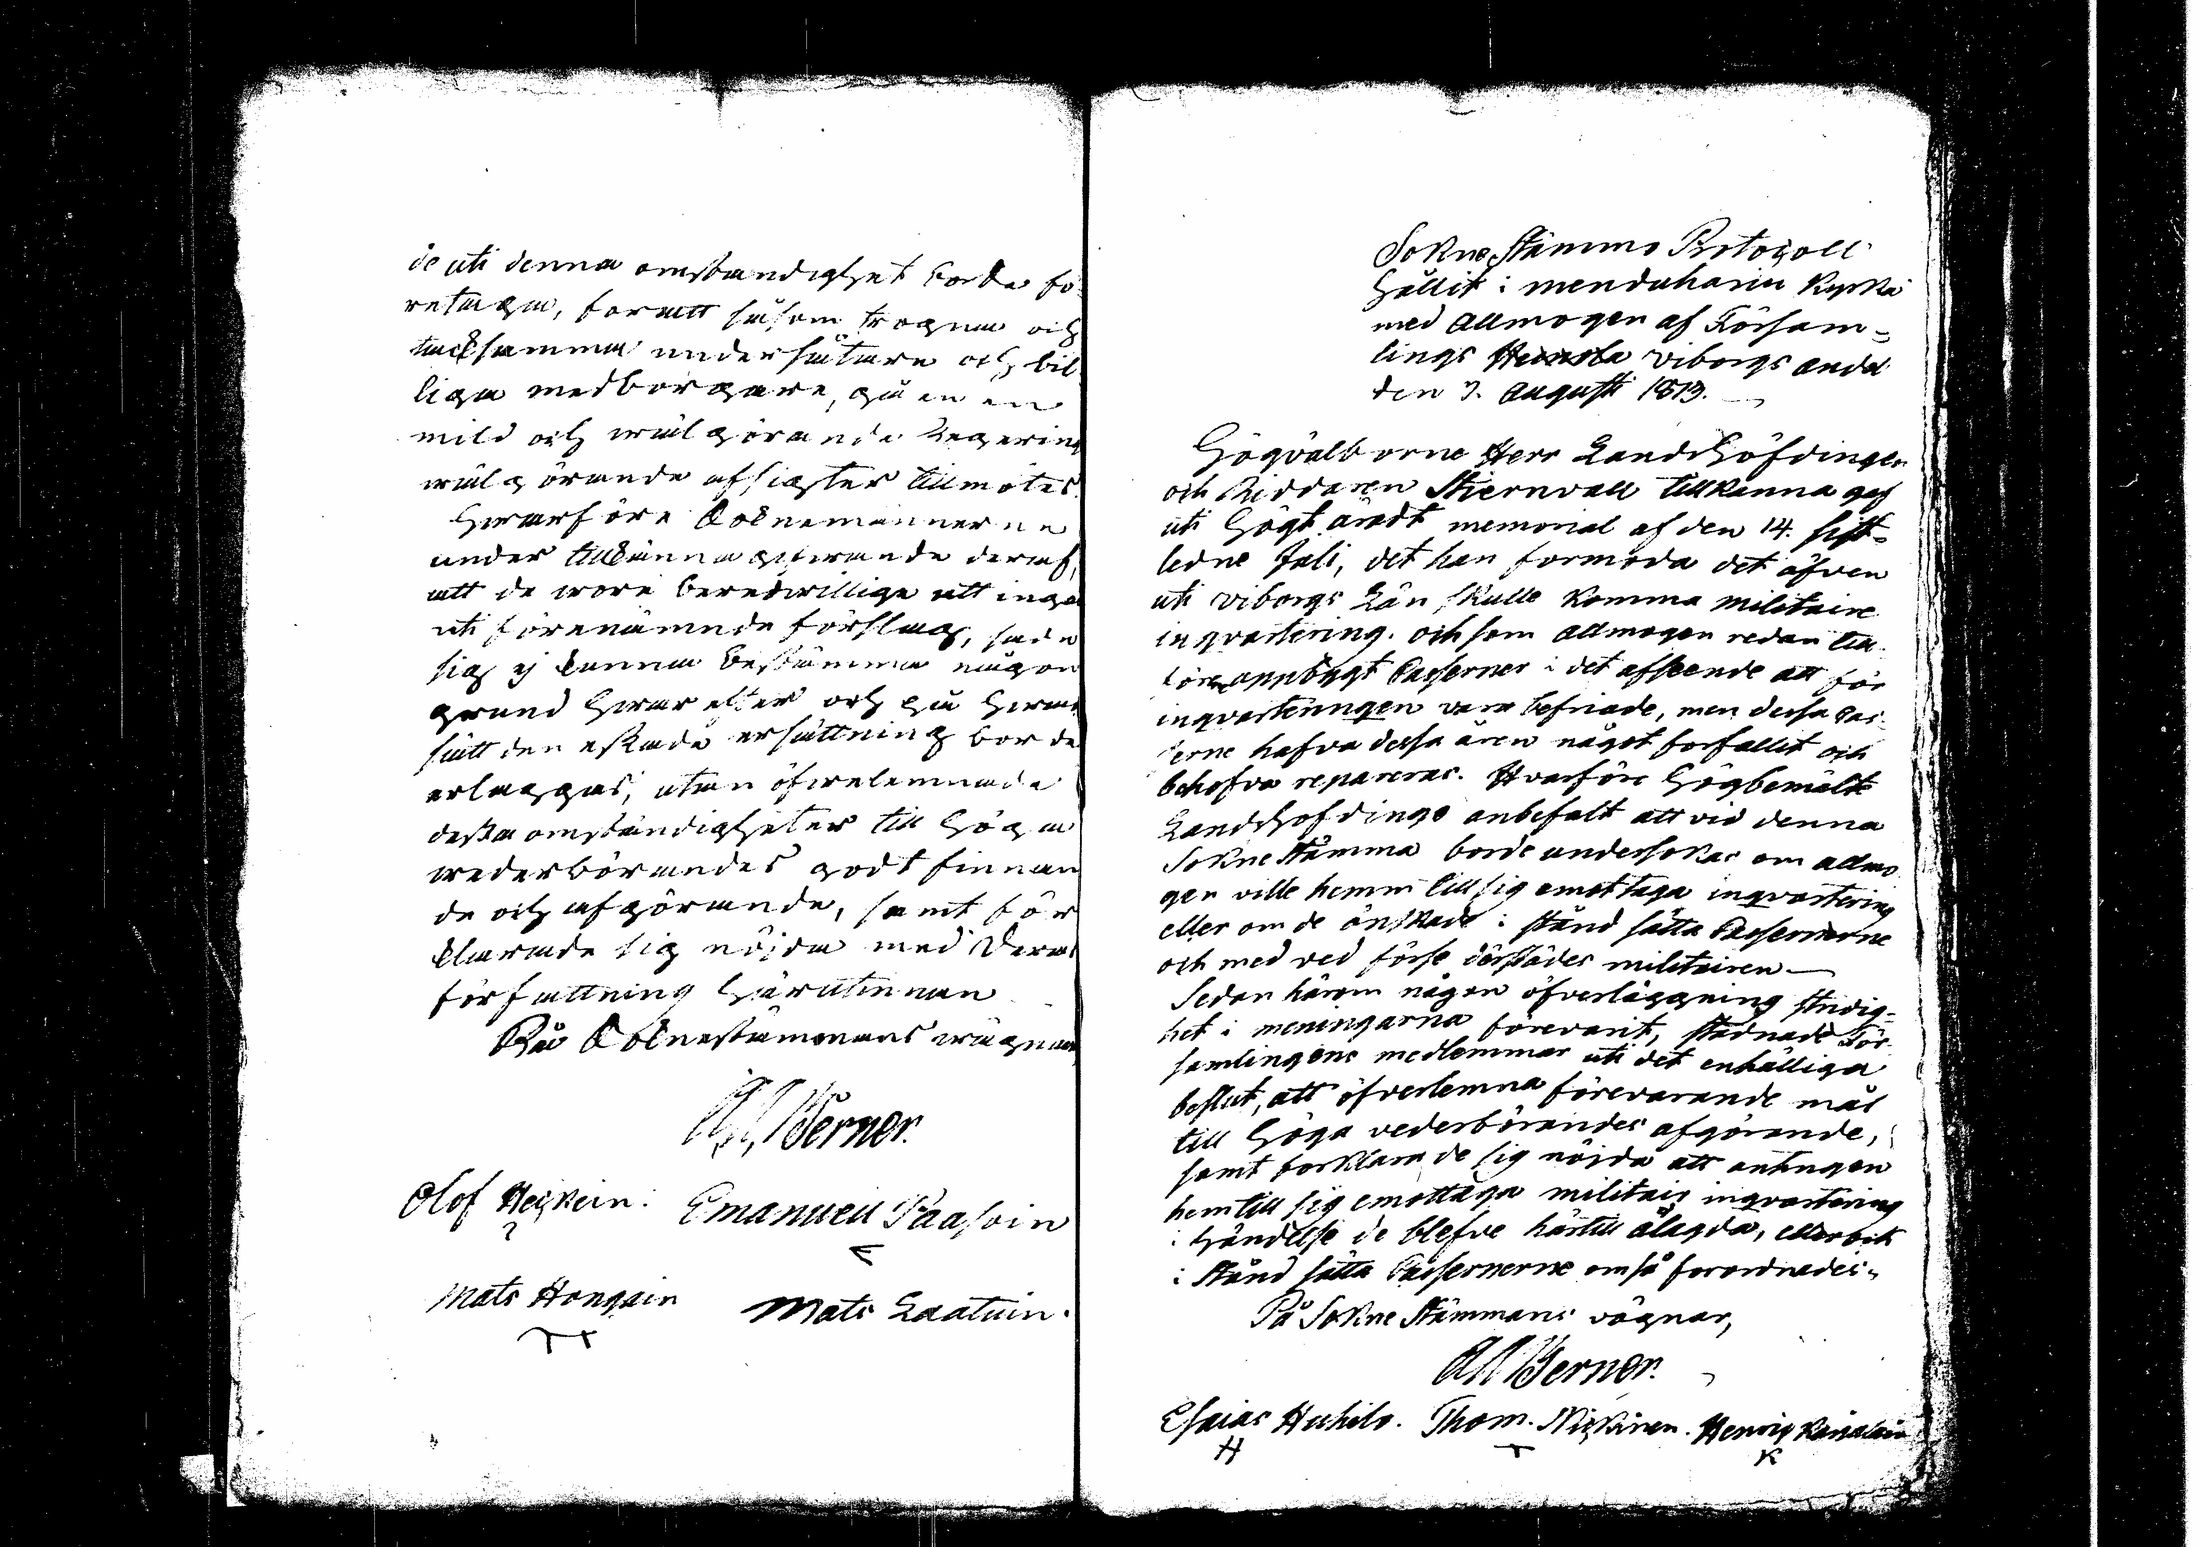 de uti denna omständighet borde fö
retaga, för att såsom trogna och
tacksamma undersåtare och bil
liga medborgare, gå en en
mild och wälgörande Regering
wälgörande afsigter tillmötes.
Hwarföre Soknemännerne
under tillkänna gifwande deraf,
att de wore beredwillige att inga
uti förenämnde förslag, sade
sig ej kunna bestämma någon
grund hwarefter och på hwad
sätt den äskade ersättning borde
erläggas, utan öfwerlemnade
dessa omständigheter till Höga
wederbörandes godt finnan
de och afgörande, samt för
klarade sig nöjda med Deras
författning härutinnan
På Soknestämmans wägnar
And. Werner.
Olof Heiskein: Emanuell Paasoin
Mats Hongain Mats Laatuin.
SokneStämmo Protocoll
Hållit i menduharju Kyrka
med allmogen af Församlings
Heinola viborgs andel
den 3. Augusti 1813.
Högvälborne Herr Landshöfdingen
och Riddaren Stiernvall tillkänna gaf
uti Högt äradt memorial af den 14. sist-
ledne Juli, det han formoda det äfven
uti viborgs Län skulle komma militaire
inqvartering. och som allmogen redan till
förene uppbygt Casserner i det afseende att för
inqvarteringen vara befriade, men dessa Cas-
serne hafva dessa åren något forfallit och
behofva repareras. Hvarföre Högbemälte
Landshofdinge anbefalt att vid denna
SokneStämma borde undersokas om allmo
gen ville hemm till sig emottaga inqvartering
eller om de önskade i stånd sätta Cassernerne
och med ved förse därstädes militairen —
Sedan härom någon öfverläggning stridig-
het i meningarna förevarit, stadnade För-
samlingens medlemmar uti det enhälliga
beslut, att öfverlemna förevarande mål
till Höga vederbörandes afgörande,
samt forklarade sig nöjda att antingen
hem till sig emottaga militair inqvartering
i händelse de blefve härtill ålagda, eller ock
i stånd sätta Cassernerne om så forordnades.
På SokneStämmans vägnar,
And. Werner.
Esaias Huhilo. Thom. Miskinen. Henric Kärälain
H K